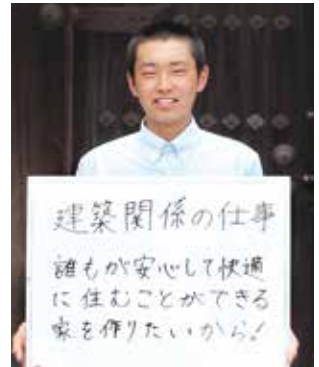 建築関係の仕事
誰もが安心して快適
に住むことができる
家を作りたいから!